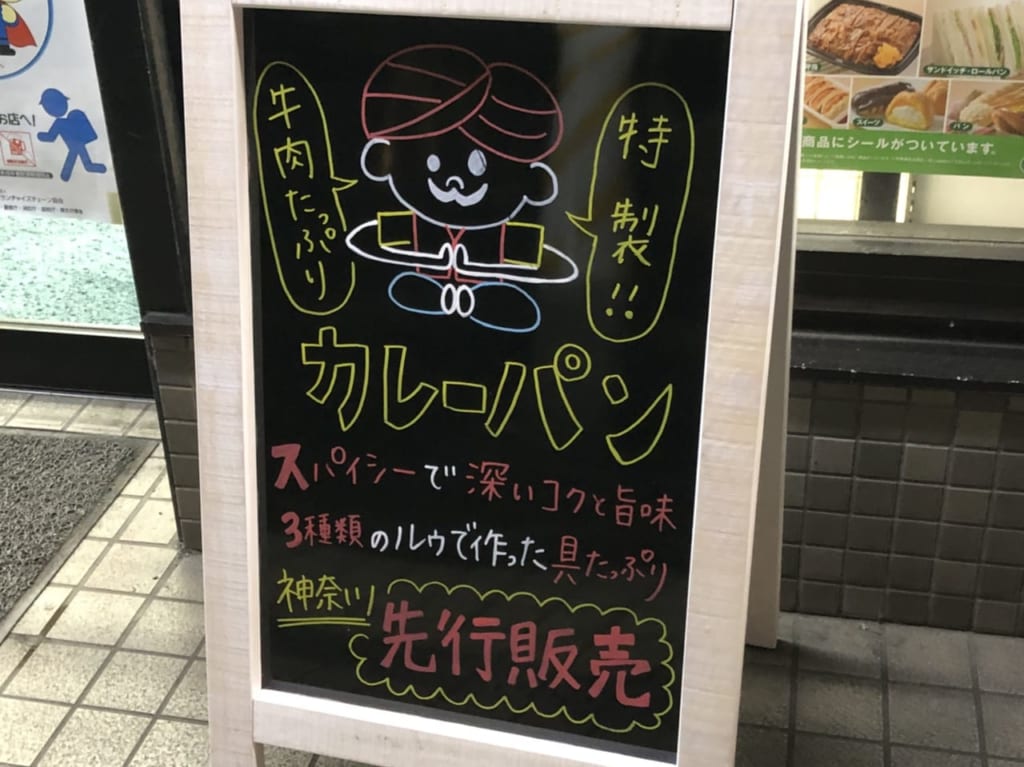 牛肉たっぷり
特製!!
カレーパン
スパイシーで深いコクと旨味
3種類のルゥで作った具たっぷり
神奈川
先行販売
お店へ!
サンドイッチ・ロールパン
スイーツ
パン
商品にシールがついています。